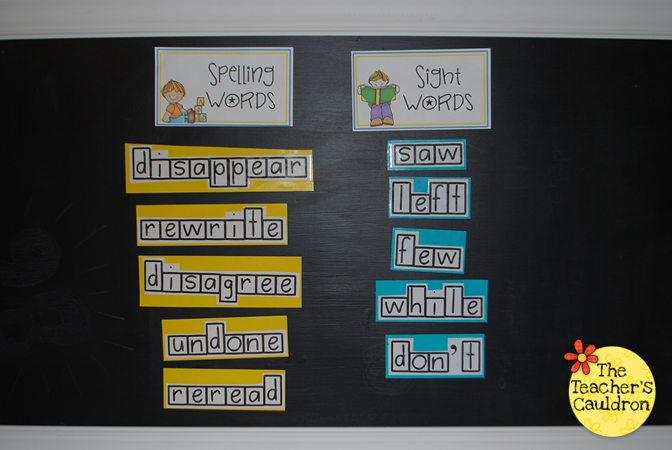 Spelling
WORDS
disappear
rewrite
disagree
undone
reread
Sight
WORDS
saw
left
few
while
don't
The
Teacher's
Cauldron